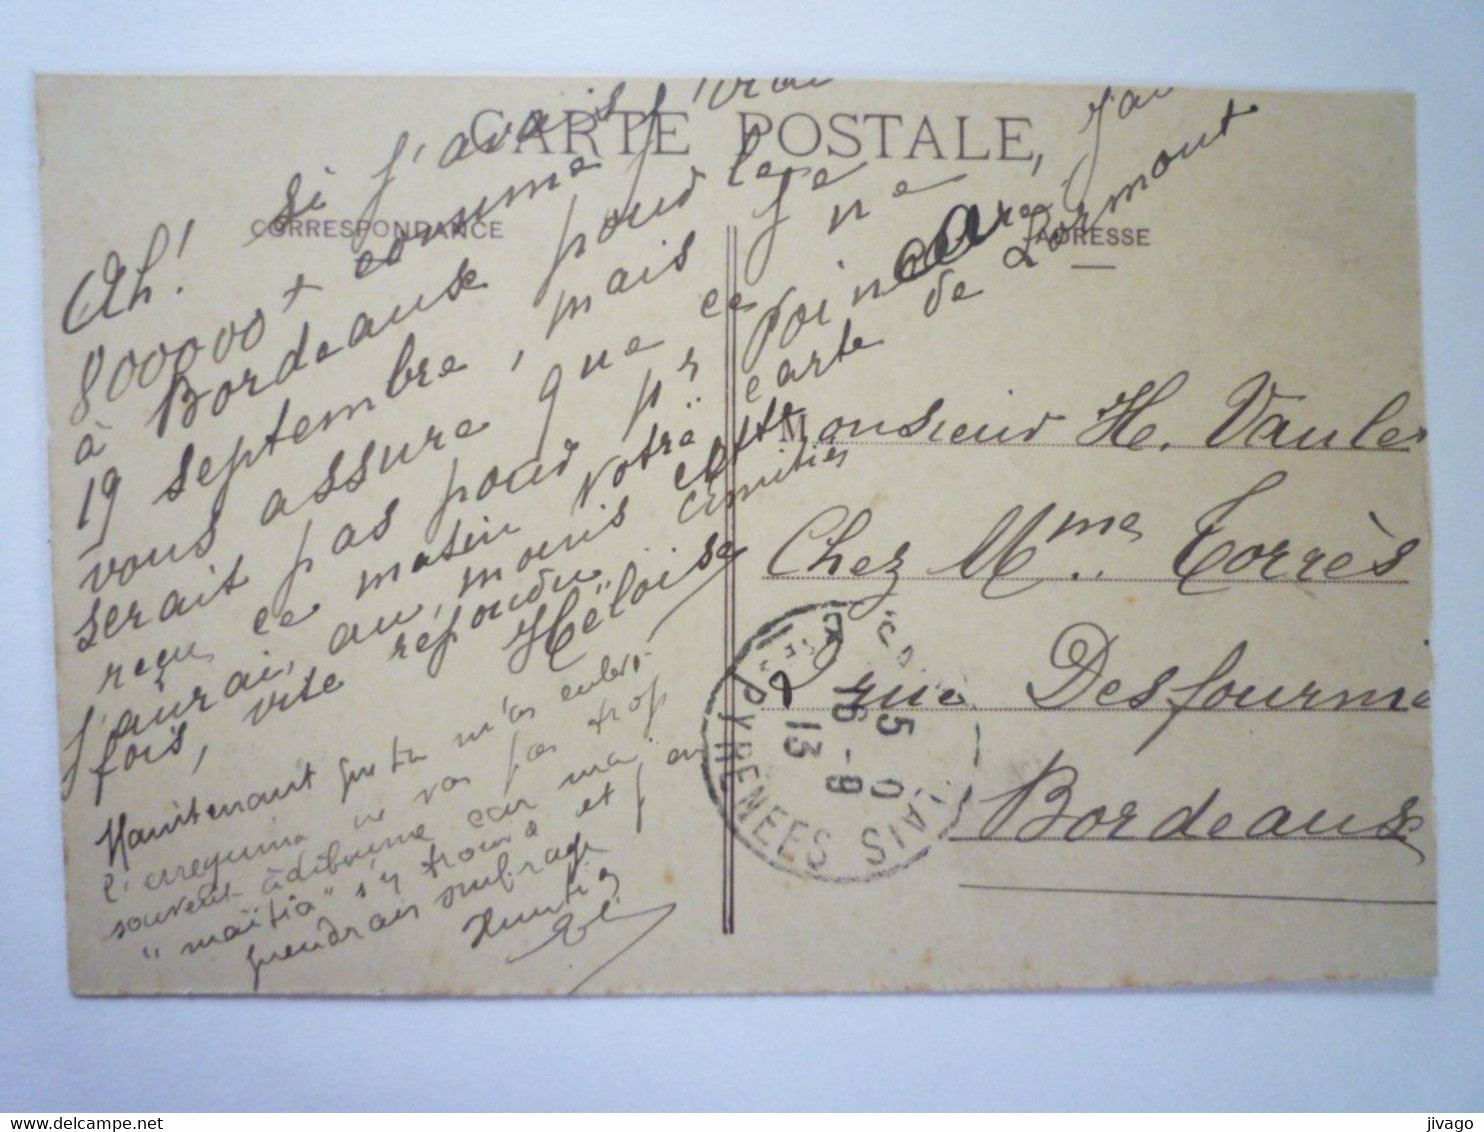 CARTE POSTALE
CORRESPONDANCE
ADRESSE
Ah! si j'avais
800000 + comme j'irai
à Bordeaux pour le
19 septembre, mais je
vous assure que ce ne
serait pas pour Mr Poincaré, J'ai
reçu ce matin votre carte de Lormont
j'aurai, au moins cette
fois, vite répondu. amitiés
Héloïse
Maintenant que tu m'as
ne vas pas trop
souvent car ma
"maïtia" s'y trouve et j'en
prendrais ombrage
Monsieur H. Vaule
Chez Mme Torrès
2 rue Desfourni
Bordeaux
5
16-9
13
PYRENEES
Jivago
www.delcampe.net